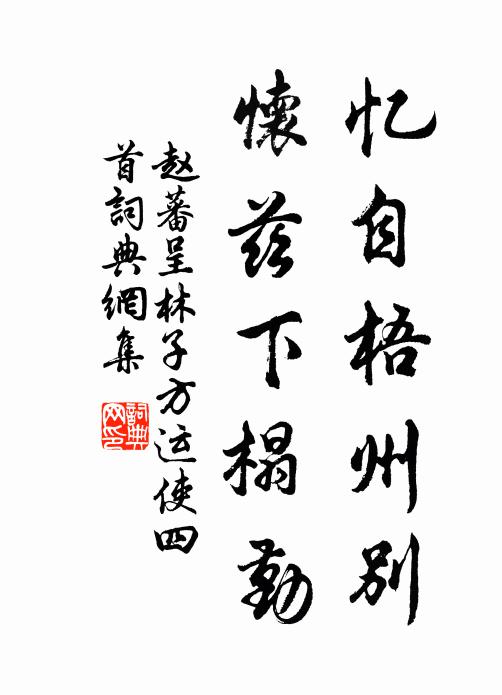 忆自梧州别
懷兹下榻勤
赵蕃呈林子方运使四
首詞典網集
詞典
网印